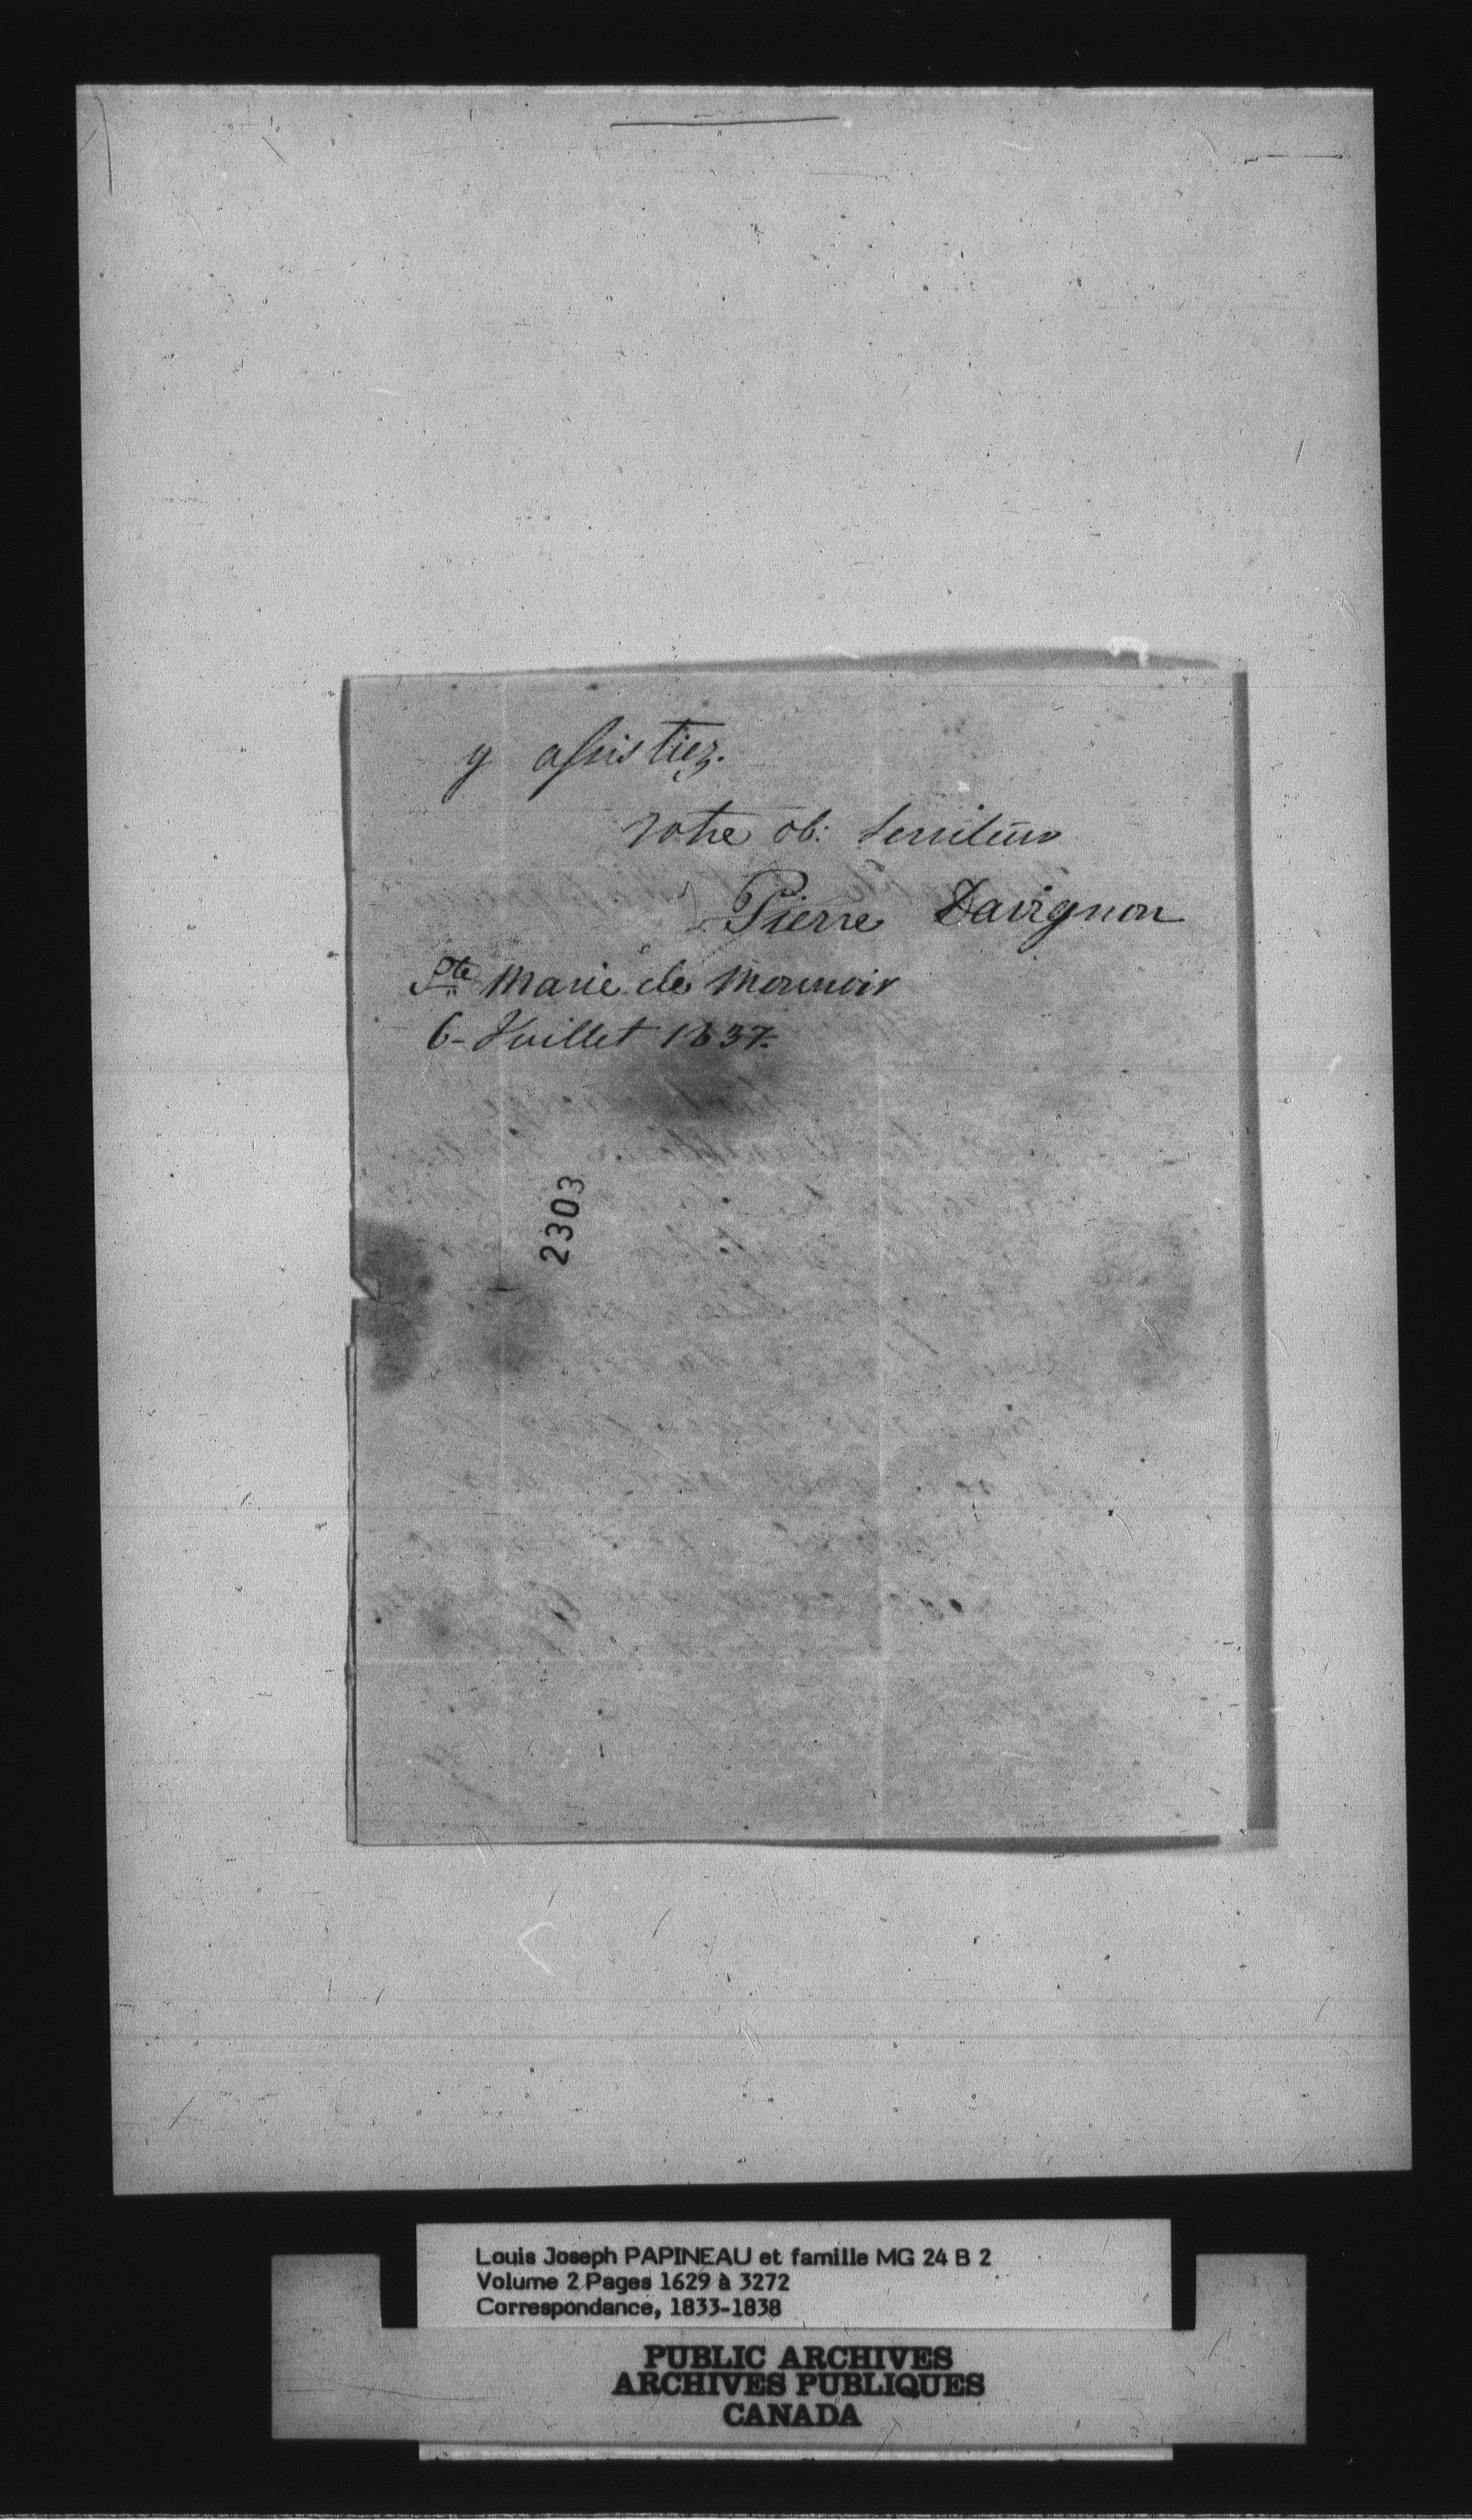 y assistiez.
Votre ob: Serviteur
Pierre Davignon
Ste Marie de Monnoir
6- Juillet 1837-
2303
Louis Joseph PAPINEAU et famille MG 24 B 2
Volume 2 Pages 1629 à 3272
Correspondance, 1833-1838
PUBLIC ARCHIVES
ARCHIVES PUBLIQUES
CANADA